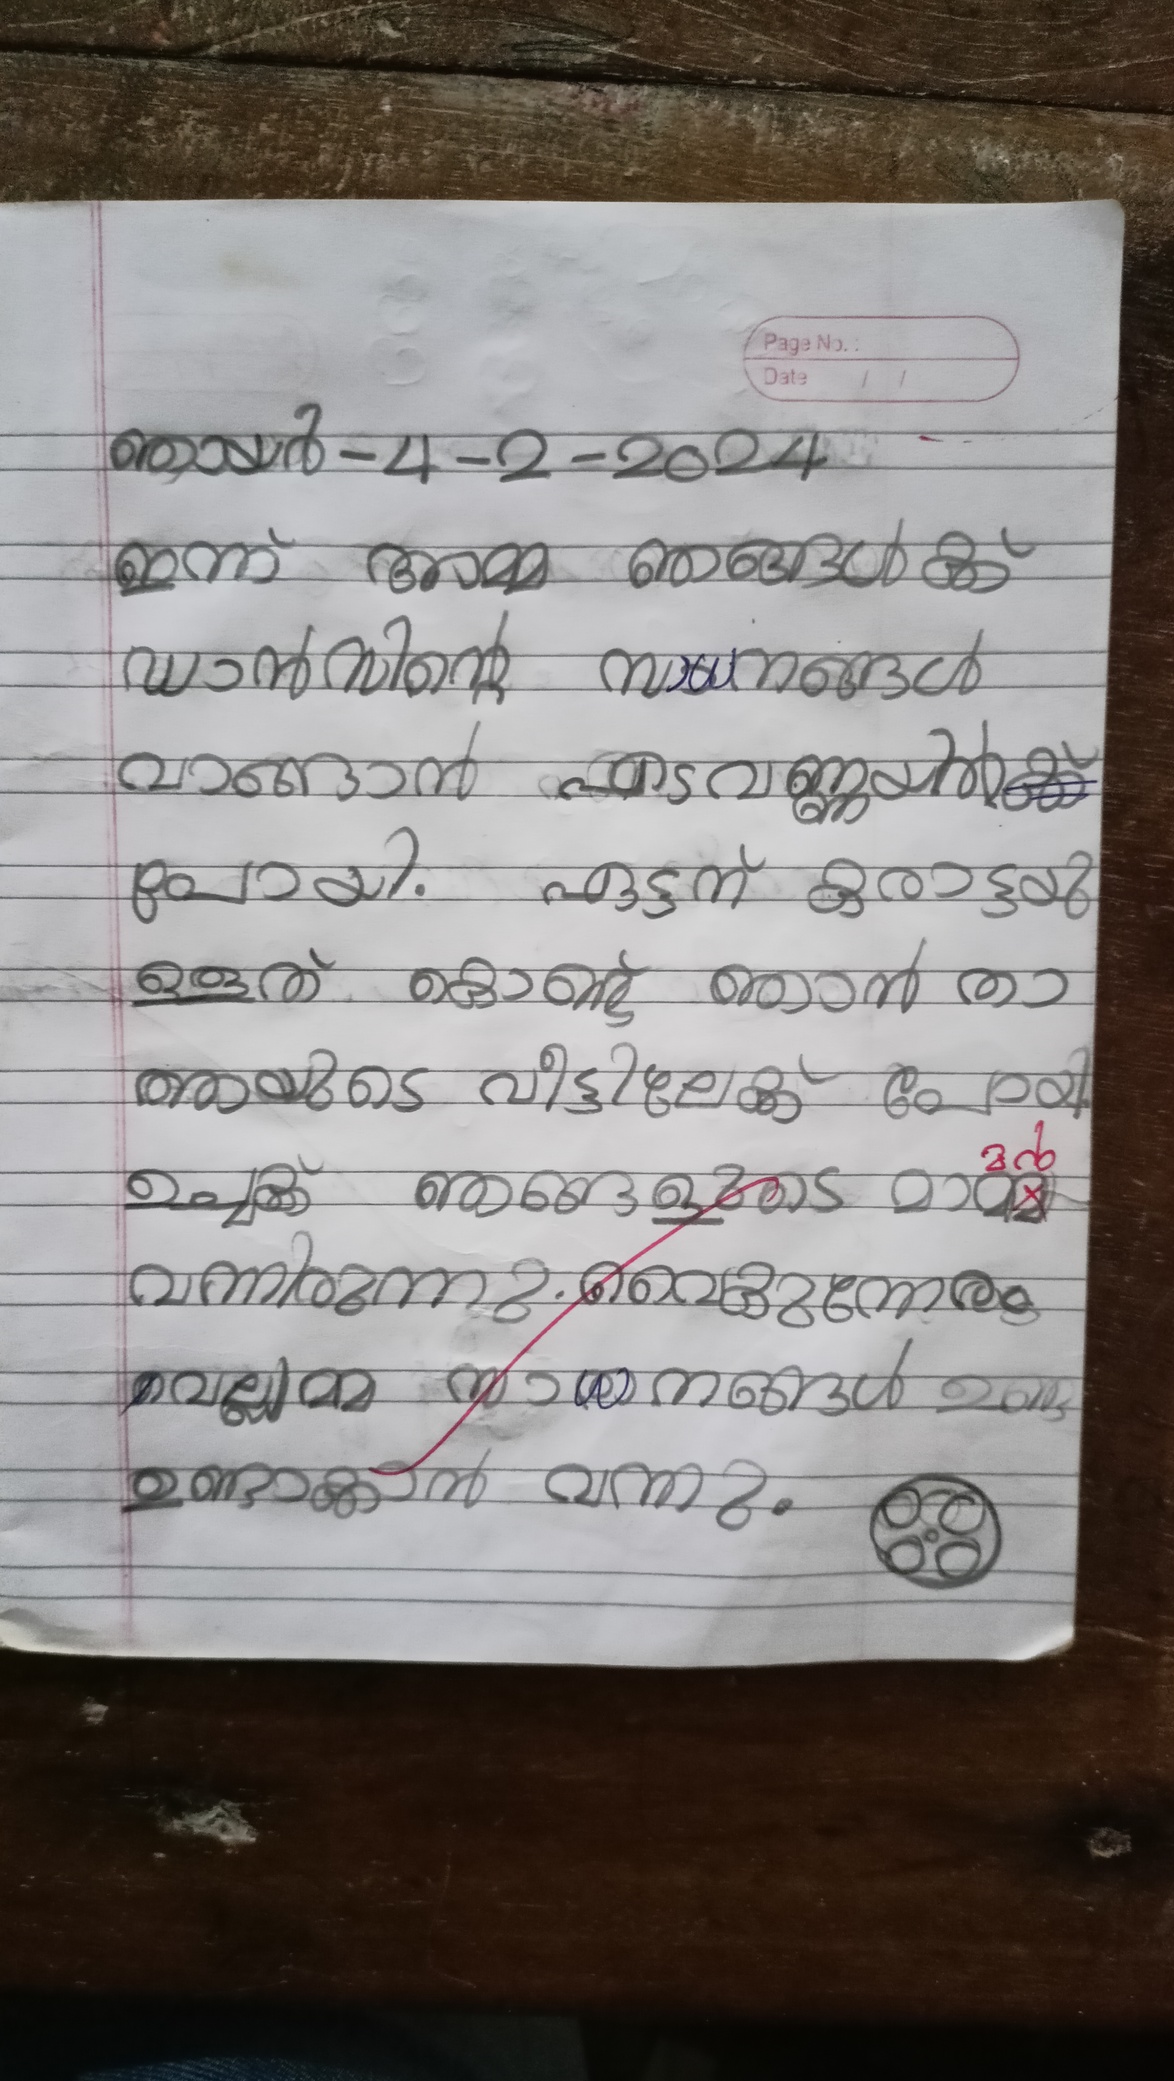 Page No. :
Date / /
ഞായർ - 4 - 2 - 2024
ഇന്ന് അമ്മ ഞങ്ങൾക്ക്
ഡാൻസിന്റെ സാധനങ്ങൾ
വാങ്ങാൻ എടവണ്ണയിൽ
പോയി. ഏട്ടന് കരാട്ടയു
ള്ളത് കൊണ്ട് ഞാൻ താ
ത്തയുടെ വീട്ടിലേക്ക് പോയി
ഉച്ചക്ക് ഞങ്ങളുടെ മാമ
മൻ
വന്നിരുന്നു. വൈകുന്നേരം
വെല്ലിമ്മ സാധനങ്ങൾ
ഉണ്ടാക്കാൻ വന്നു.